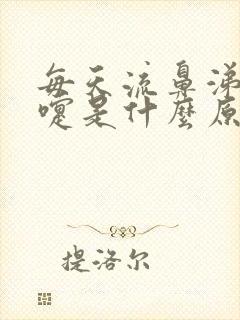 每天流鼻涕
嚏是什麼原
提洛尔